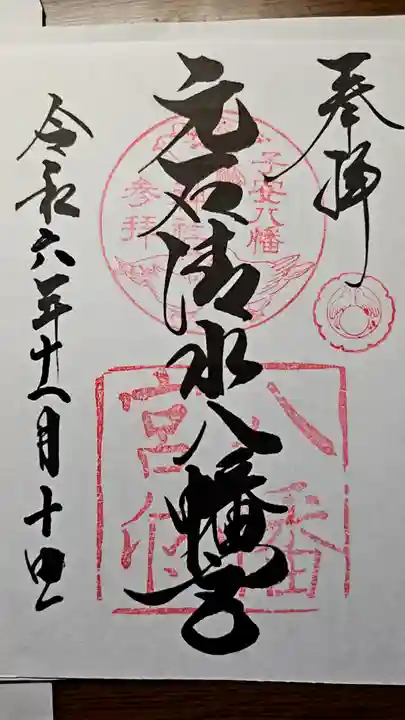 奉拝
元石清水八幡宮
令和六年十一月十日
子安八幡
参拝
八幡
宮印